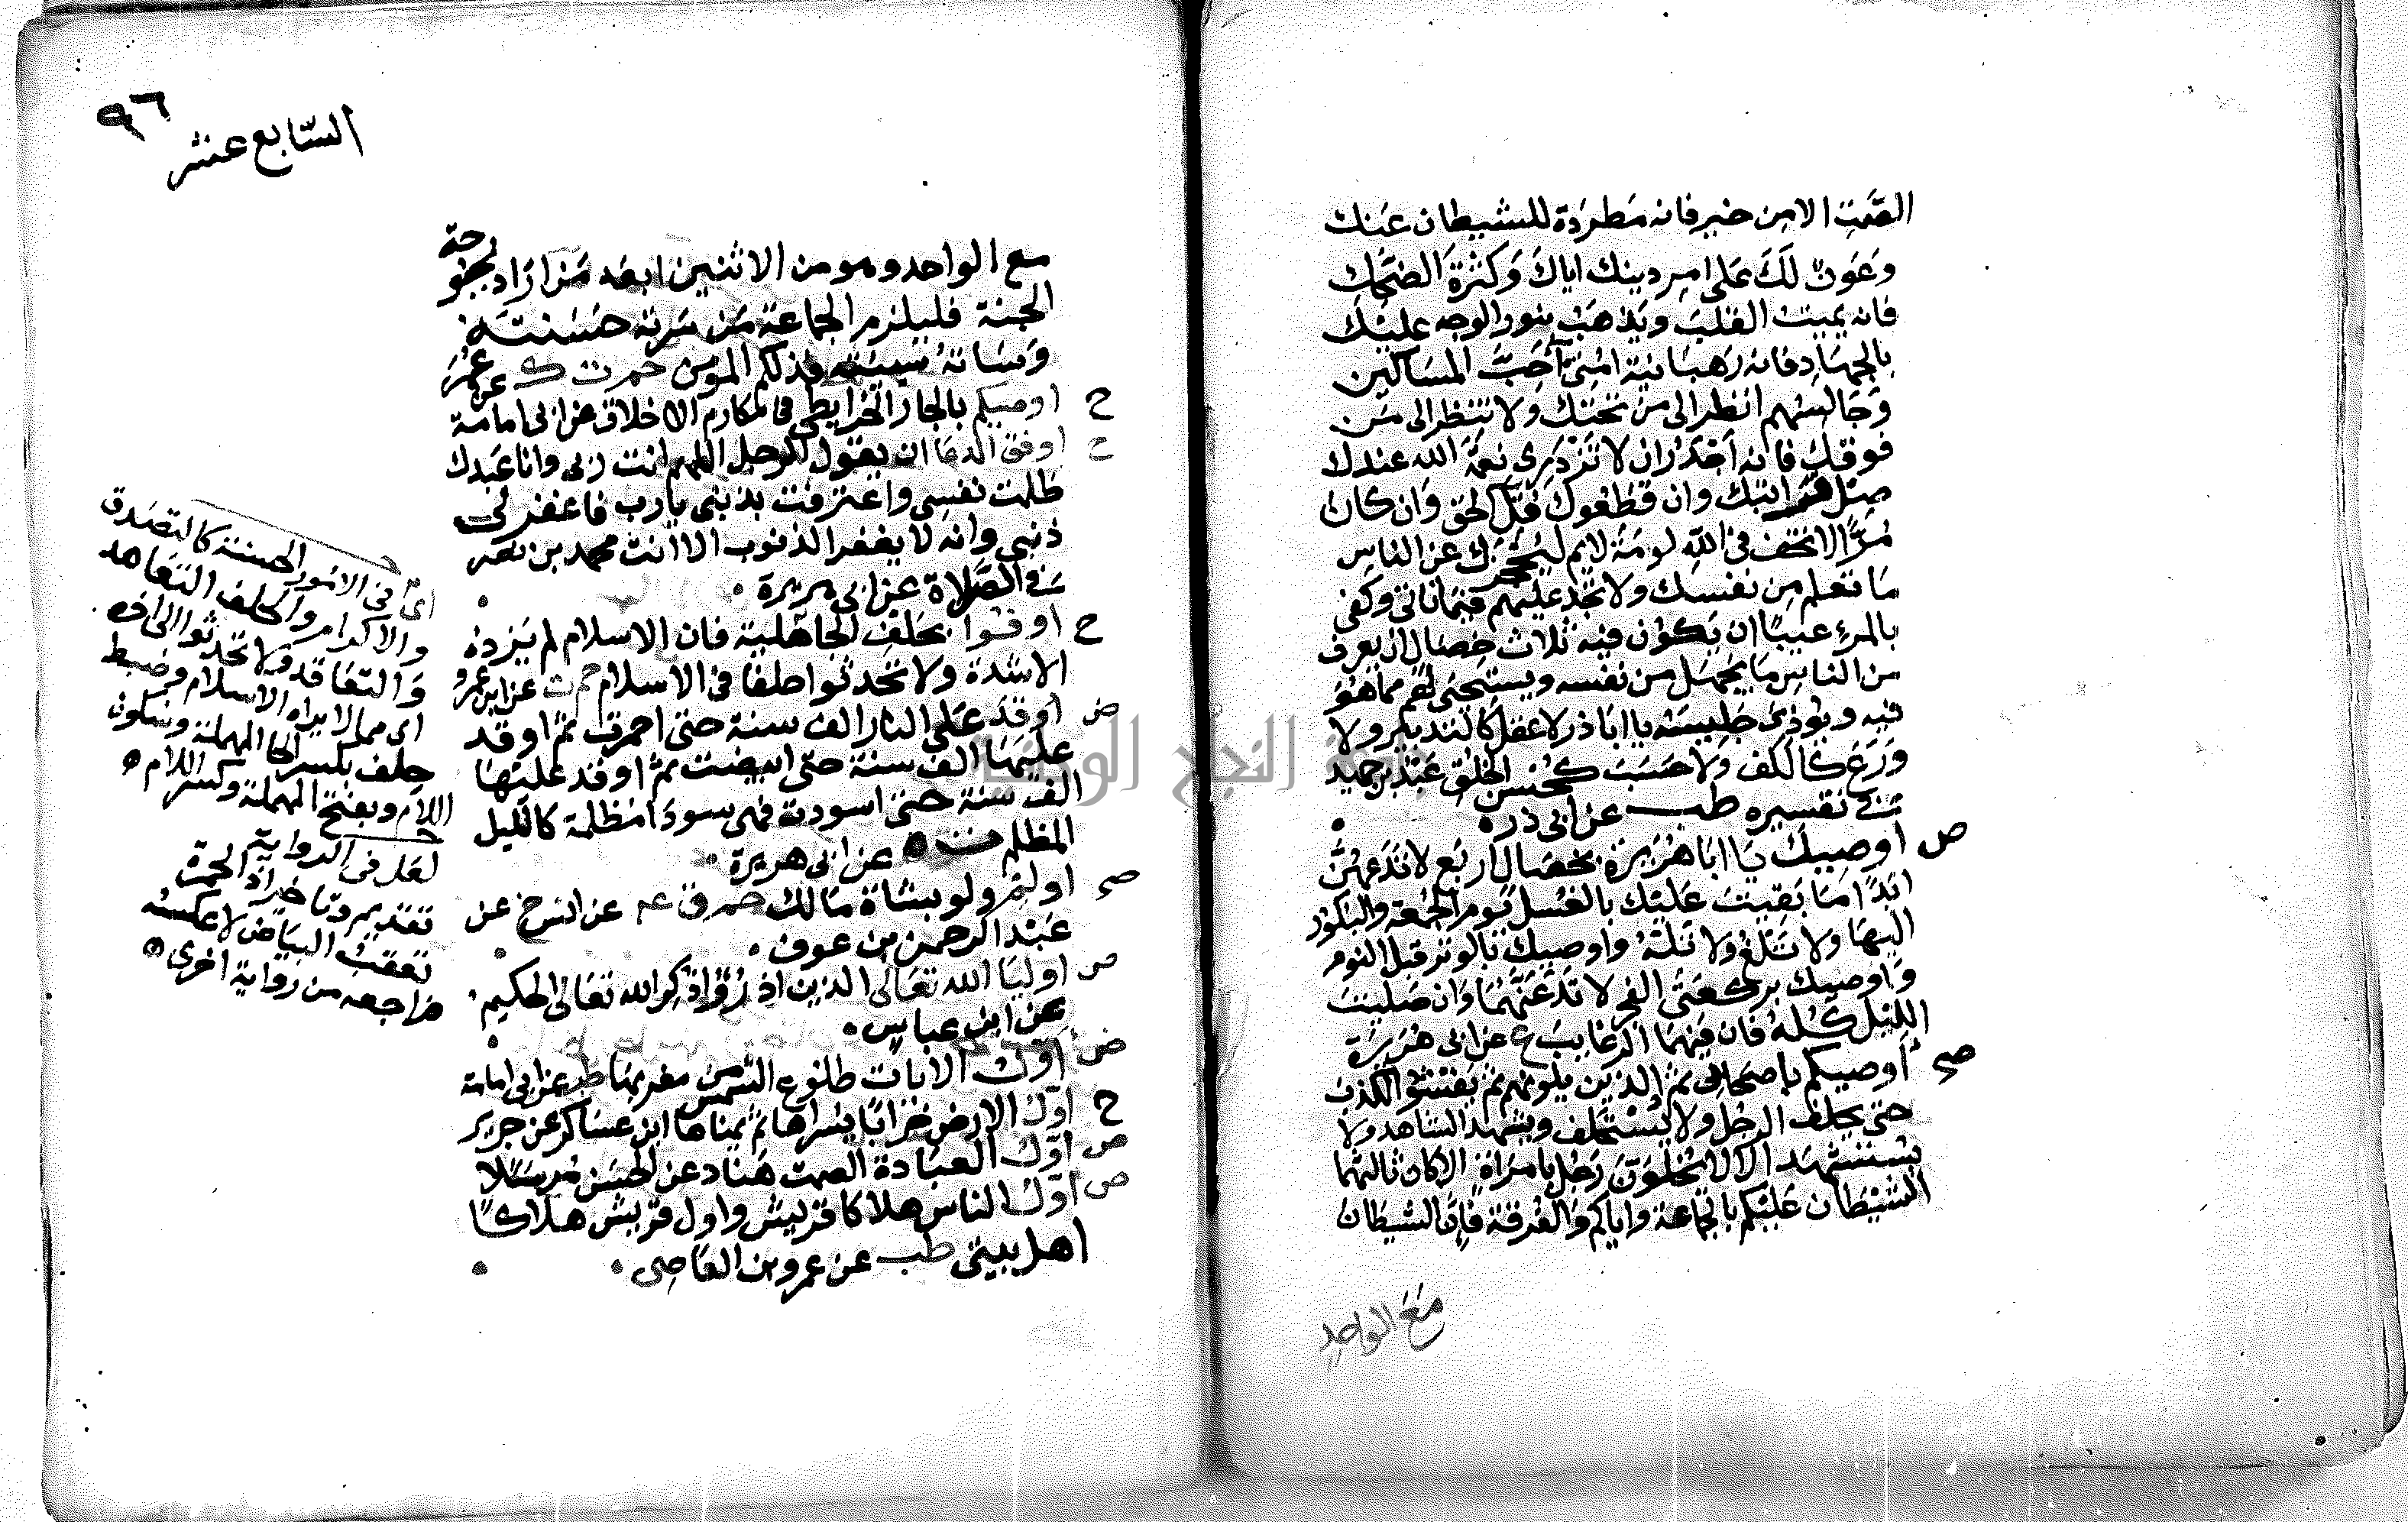 الصمت الا من خير فانه مطردة للشيطان عنك
وعون لك على امر دينك اياك وكثرة الضحك
فانه يميت القلب ويذهب بنور الوجه عليك
بالجهاد فانه رهبانية امتى أحب المساكين
وجالسهم انظر الى من تحتك ولا تنظر الى من
فوقك فانه أجدر ان لا تزدرى نعمة الله عندك
صل قرابتك وان قطعوك قل الحق وان كان
مرًّا لا تخف فى الله لومة لايم ليحجزك عن الناس
ما تعلم من نفسك ولا تجد عليهم فيما تاتى وكفى
بالمرء عيبًا ان يكون فيه ثلاث خصال ان يعرف
من الناس ما يجهل من نفسه ويستحى لهم مما هو
فيه ويوذى جليسه يا ابا ذر لا عقل كالتدبير ولا
ورع كالكف ولا حسب كحسن الخلق عبد بن حميد
فى تفسيره طب عن ابى ذر
ص اوصيك يا ابا هريرة بخصال اربع لا تدعهنّ
ابدًا ما بقيت عليك بالغسل يوم الجمعة والبكور
اليها ولا تلغ ولا تله واوصيك بالوتر قبل النوم
واوصيك بركعتى الفجر لا تدعهما وان صليت
الليل كله فان فيهما الرغايب ع عن ابى هريرة
صح اوصيكم باصحابى ثم الذين يلونهم ثم يفشو الكذب
حتى يحلف الرجل ولا يستحلف ويشهد الشاهد ولا
يستشهد الا لا يخلونّ رجل بامراة الا كان ثالثهما
الشيطان عليكم بالجماعة واياكم والفرقة فإن الشيطان
مع الواحد
٩٦
السابع عشر
مع الواحد وهو من الاثنين ابعد من اراد بحبوحة
الجنة فليلزم الجماعة من سرته حسنته
وساته سيئته فذلكم المومن حم ت ك عن عمر
ح اوصيكم بالجار الخرايطى فى مكارم الاخلاق عن ابى امامة
ح اوفق الدعا ان يقول الرجل اللهم انت ربى وانا عبدك
ظلمت نفسى واعترفت بذنبى يا رب فاغفر لى
ذنبى وانه لا يغفر الذنوب الا انت محمد بن نصر
فى الصلاة عن ابى هريرة
ح اوفوا بحلف الجاهلية فان الاسلام لم يزده
الا شدة ولا تحدثوا حلفا فى الاسلام حم ت عن ابن عمرو
ض اوقد على النار الف سنة حتى احمرت ثم اوقد
عليها الف سنة حتى ابيضت ثم اوقد عليها
الف سنة حتى اسودت فهى سودا مظلمة كالليل
المظلم ت ه عن ابى هريرة
صح اولم ولو بشاة مالك حم ق عه عن انس خ عن
عبد الرحمن بن عوف
ض اوليا الله تعالى الذين اذا رؤا ذكر الله تعالى الحكيم
عن ابن عباس
ض اوّل الايات طلوع الشمس من مغربها طب عن ابى امامة
ح اوّل الارض خرابًا يسراها ثم يمناها ابن عساكر عن جرير
ض اوّل العبادة الصمت هناد عن الحسن مرسلا
ض اوّل الناس هلاكا قريش واول قريش هلاكًا
اهل بيتى طب عن عمرو بن العاصى
اى فى الامور الحسنة كالتصدق
والاكرام والحلف التعاهد
والتعاقد ولا تحدثوا الى اخره
اى مما لا يراه الاسلام وضبط
حلف بكسر الحا المهملة وسكون
اللام وبفتح المهملة وكسر اللام ه
لعل فى الرواية
تقديم وتاخير اذ الحمرة
تعقب البياض لا عكسه
فراجعه من رواية اخرى ه